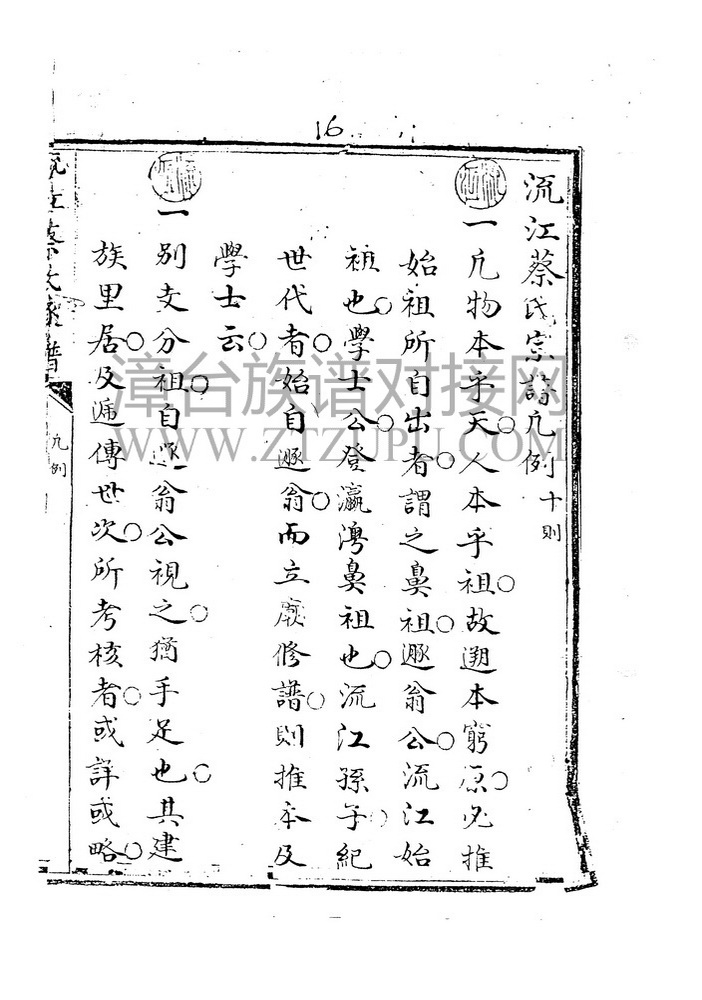 16
流江蔡氏宗譜凡例 十則
一凡物本乎天人本乎祖故遡本窮原必推
始祖所自出者謂之鼻祖遯翁公流江始
祖也學士公登瀛灣鼻祖也流江孫子紀
世代者始自遯翁而立廟修譜則推本及
學士云
一別支分祖自遯翁公視之猶手足也其建
族里居及遞傳世次所考核者或詳或略
流江蔡氏家譜
凡例
漳台族谱对接网
WWW.ZTZUPU.COM